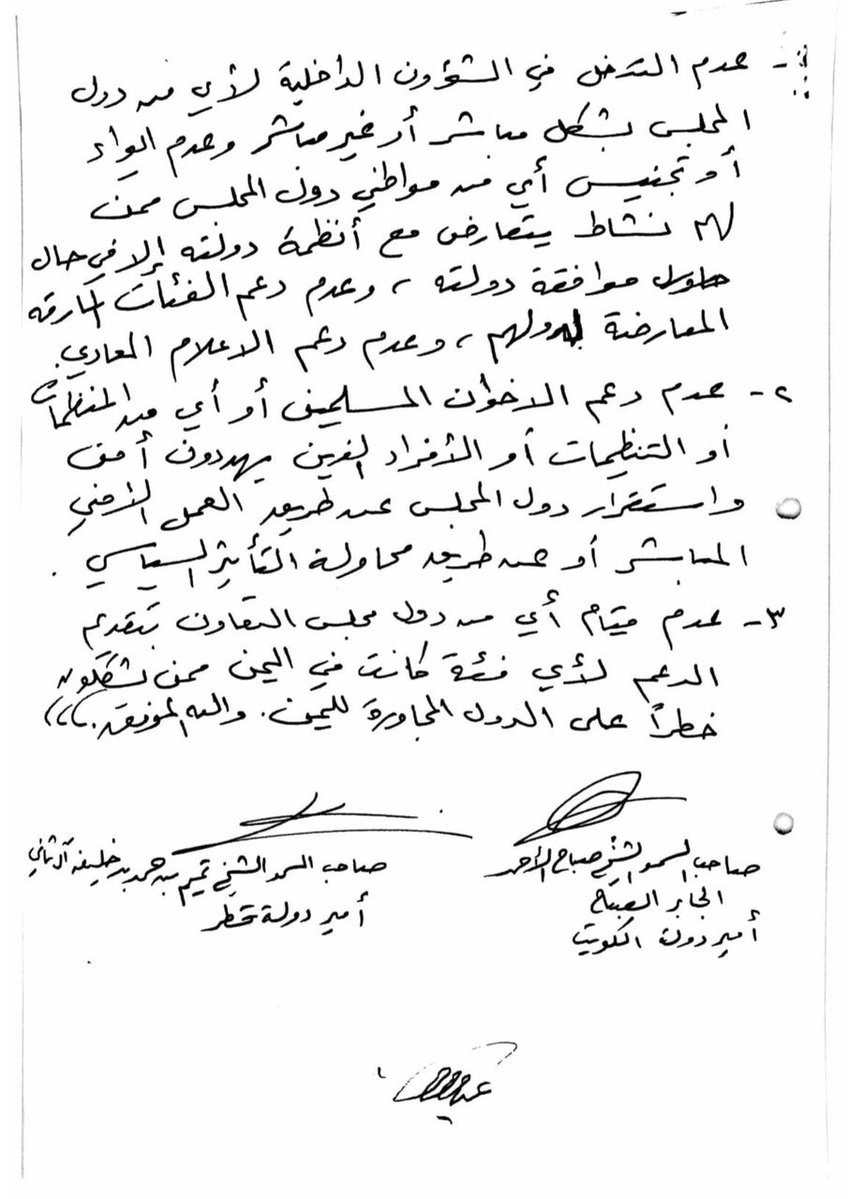 ١- عدم التدخل في الشؤون الداخلية لأي من دول
المجلس بشكل مباشر أو غير مباشر وعدم إيواء
أو تجنيس أي من مواطني دول المجلس ممن
لهم نشاط يتعارض مع أنظمة دولته إلا في حال
موافقة دولته ، وعدم دعم الفئات المارقه
المعارضة لدولهم ، وعدم دعم الاعلام المعادي .
٢- عدم دعم الاخوان المسلمين أو أي من المنظمات
أو التنظيمات أو الأفراد الذين يهددون أمن
واستقرار دول المجلس عن طريق العمل الأمني
المباشر أو عن طريق محاولة التأثير السياسي .
٣- عدم قيام أي من دول مجلس التعاون بتقديم
الدعم لأي فئة كانت في اليمن ممن يشكلون
خطراً على الدول المجاورة لليمن . والله الموفق .،،،
صاحب السمو الشيخ صباح الأحمد
الجابر الصباح
أمير دولة الكويت
صاحب السمو الشيخ تميم بن حمد بن خليفه آل ثاني
أمير دولة قطر